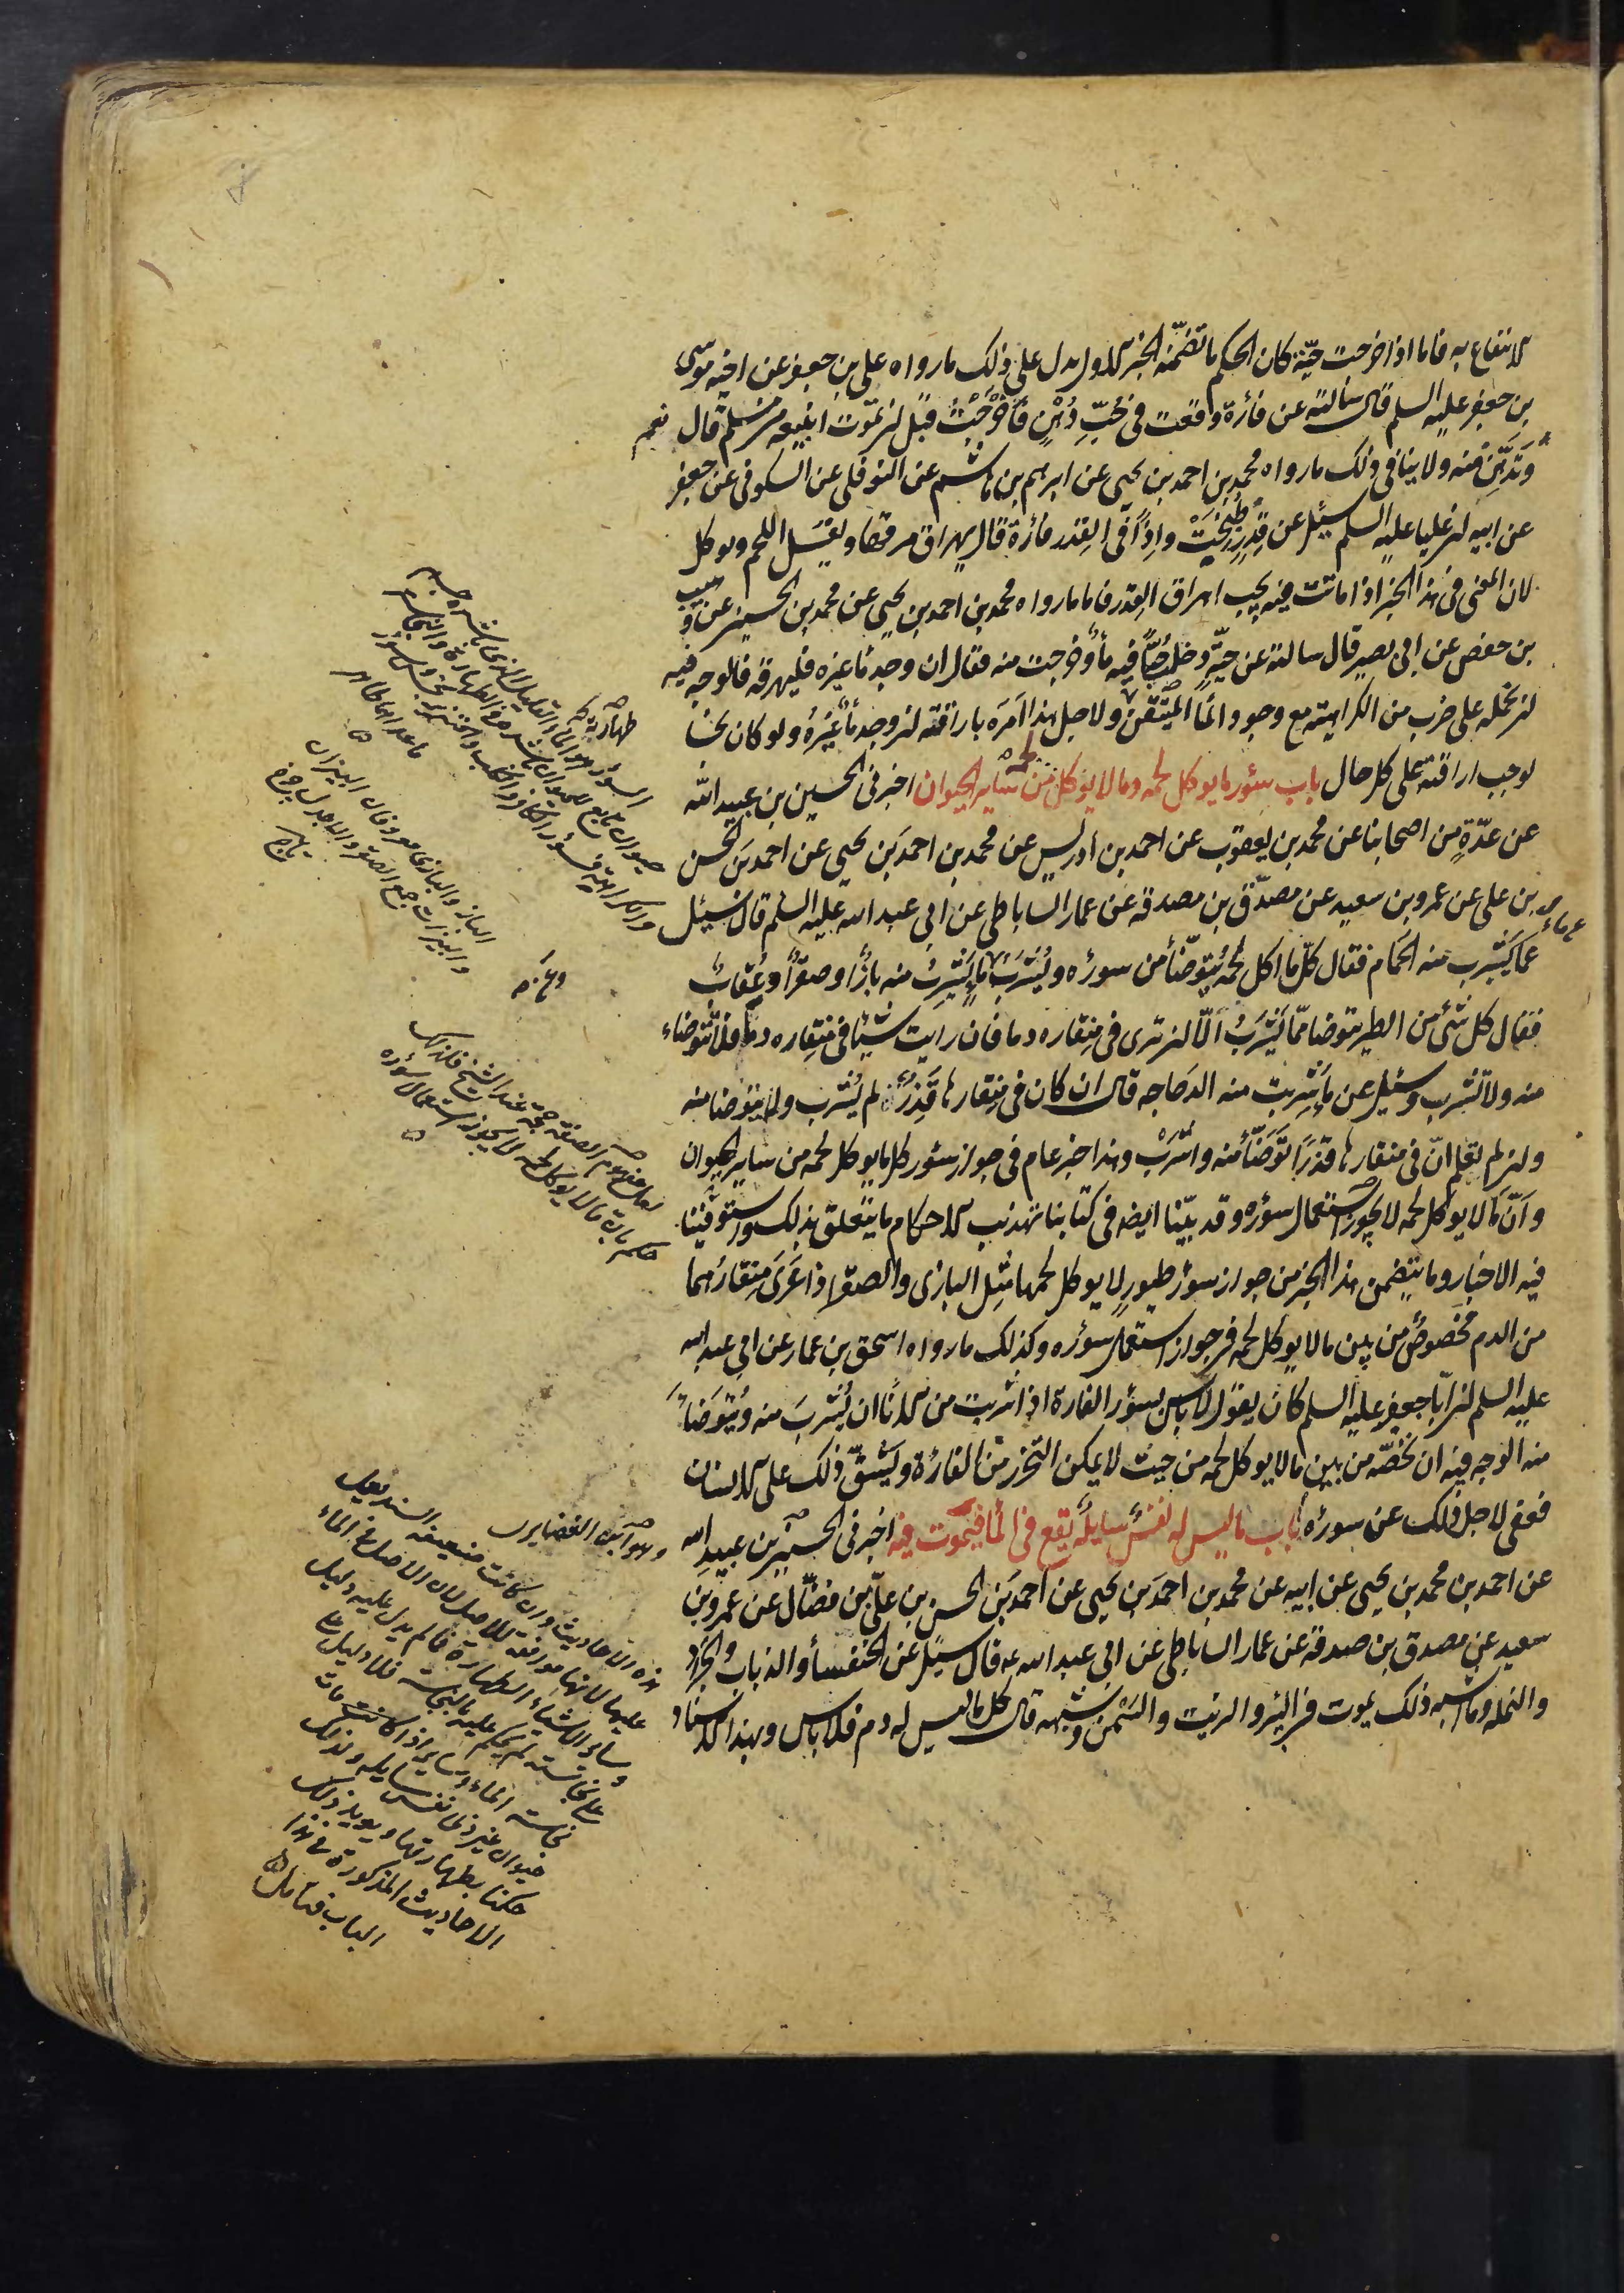 الانتفاع به فاما اذا خرجت حيّة كان الحكم ما تضمّنه الخبر الاول يدل على ذلك ما رواه علي بن جعفر عن اخيه موسى
بن جعفر عليه السلم قال سالته عن فأرة وقعت في حُبّ دُهْنٍ فأخرجت قبل ان تموت انبيعه من مسلم قال نعم
وتدّهن منه ولا ينافي ذلك ما رواه محمد بن احمد بن يحيى عن ابرهيم بن هاشم عن النوفلي عن السكوني عن جعفر
عن ابيه ان عليا عليه السلم سئل عن قِدرٍ طُبِخَتْ واِذاً في القِدر فأرة قال يهراق مرقها ويغسل اللحم ويوكل
لان المعنى في هذا الخبر اذا ماتت فيه يجب اهراق القدر فاما ما رواه محمد بن احمد بن يحيى عن محمد بن الحسين عن وهيب
بن حفص عن ابي بصير قال سالته عن حيّةٍ دخل حُبّاً فيه مأ وخرجت منه فقال ان وجد مأ غيره فليهرقه فالوجه فيه
ان نحمله على ضرب من الكراهية مع وجود المأ المتيقّن ولاجل هذا اَمَرَه باراقته ان وجد مأً غيره ولو كان نجسا
لوجب اراقته على كل حال باب سئور ما يوكل لحمه وما لا يوكل لحمه من ساير الحيوان اخبرني الحسين بن عبيد الله
عن عدّةٍ من اصحابنا عن محمد بن يعقوب عن احمد بن ادريس عن محمد بن احمد بن يحيى عن احمد بن الحسن
بن علي عن عمرو بن سعيد عن مصدّق بن صدقه عن عمار الساباطي عن ابي عبد الله عليه السلم قال سُئِل
عما يشرب منه الحمام فقال كلّ ما اكل لحمه يُتوضّأ من سوره ويُشرب عن ماءٍ يشرب منه بازٌ او صقرٌ او عُقابٌ
فقال كل شئ من الطير يتوضا ممّا يَشْرَبُ الّا ان ترى في منقاره دما فان رايت شيئا في منقاره دما فلا تتوضاء
منه ولا تشرب وسئل عن ما شربت منه الدجاجه قال ان كان في منقارها قَذِرٌ لم يُشرب ولم يتوضا منه
وان لم تعلم انّ في منقارها قذرا توضّأ منه واشرَبْ وهذا خبر عام في جواز سئور كل ما يوكل لحمه من ساير الحيوان
وانّ ما لا يوكل لحمه لا يجوز استعمال سؤره وقد بيّنا ايضا في كتابنا تهذيب الاحكام ما يتعلق بذلك واستوفينا
فيه الاخبار وما يتضمن هذا الخبر من جواز سؤر طيورٍ لا يوكل لحمها مثل البازى والصقر اذا عَرَىَ منقارهما
من الدم مخصوصٌ من بين ما لا يوكل لحمه في جواز استعمال سؤره وكذلك ما رواه اسحق بن عمار عن ابي عبد الله
عليه السلم ان ابا جعفر عليه السلم كان يقول لا باس بسؤر الفارة اذا شربت من الاناء ان يُشربَ منه ويُتوضأ
منه الوجه فيه ان نخصّه من بين ما لا يوكل لحمه من حيث لا يمكن التحرز من الفارة ويَشقّ ذلك على الانسان
فعفى لاجل ذلك عن سوره باب ما ليس له نفسٌ سايلةٌ يقع في المأ فيموت فيه اخبرني الحسين بن عبيد الله
عن احمد بن محمد بن يحيى عن ابيه عن محمد بن احمد بن يحيى عن احمد بن الحسن بن عليّ بن فضّال عن عمرو بن
سعيد عن مصدق بن صدقة عن عمار الساباطي عن ابي عبد الله ع قال سُئل عن الخنفسأ والذباب والجراد
والنمله وما اشبه ذلك يموت في البئر والزيت والسَمْن وشبهه قال كل ما ليس له دم فلا باس وبهذا الاسناد
السؤر هو الماء القليل الذي باشره جسم
حيوان
والكراهية
ما عداها طاهر
البازي
وغيره
حجة عند الشيخ فلذلك
حكم بان ما لا يوكل لحمه لا يجوز استعمال سؤره
وهو ابن الغضايرى
هذه الاحاديث وان كانت ضعيفة السند يعمل
عليها لانها موافقة للاصل لان الاصل في الماء
وساير الاشياء الطهارة فما لم يدل عليه دليل
على نجاسته لم يحكم عليه بالنجاسة فلا دليل على
نجاسة الماء وساير اذا كانت مات
حيوان غير ذى نفس سايله ولذلك
حكمنا بطهارتها ويويد ذلك
الاحاديث المذكورة في هذا
الباب فتامل